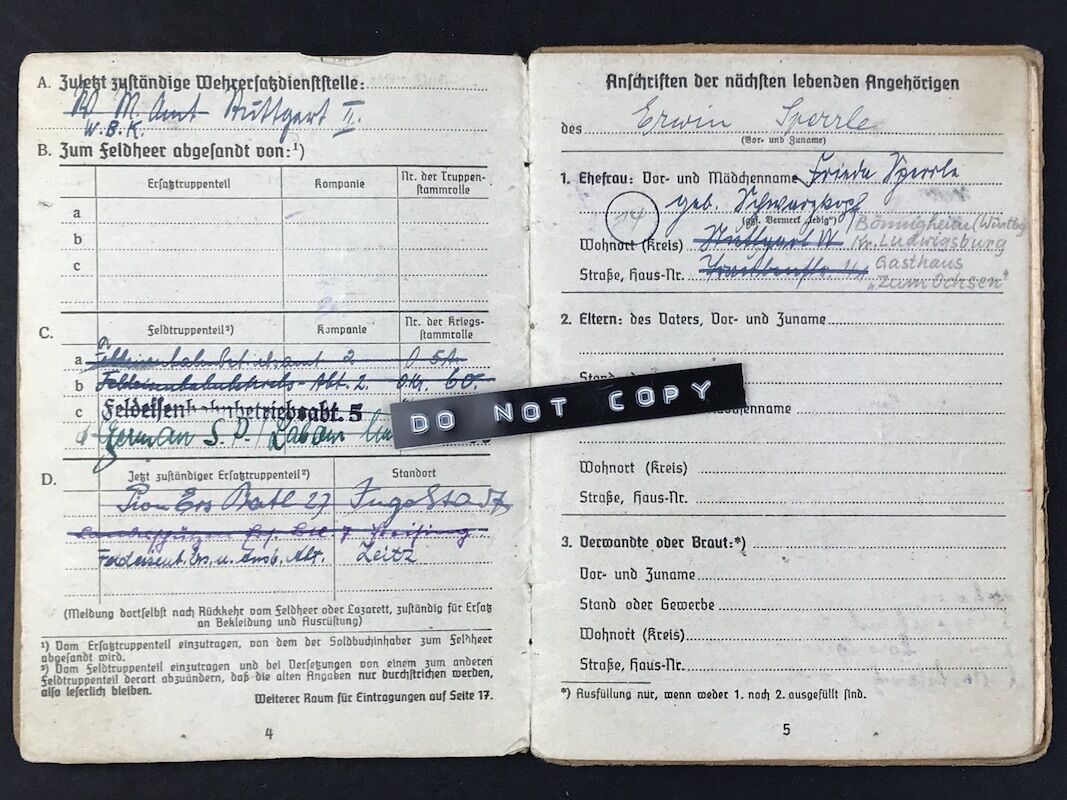 A. Zuletzt zuständige Wehrersatzdienststelle:
W. M. Amt Stuttgart II.
W.B.K.
B. Zum Feldheer abgesandt von:¹)
Ersatztruppenteil Kompanie Nr. der Truppen-
stammrolle
a
b
c
C. Feldtruppenteil²) Kompanie Nr. der Kriegs-
stammrolle
a 2
b Abt. 2. 60.
c Feldeisenbahnbetriebsabt. 5
d German S.P./Labour
D. Jetzt zuständiger Ersatztruppenteil²) Standort
Pion Ers Batl 27 Ingolstadt
Landesschützen Ers. Btl 7 Freising
Feldeisenb. Ers. u. Ausb. Abt. Zeitz
(Meldung dortselbst nach Rückkehr vom Feldheer oder Lazarett, zuständig für Ersatz
an Bekleidung und Ausrüstung)
¹) Vom Ersatztruppenteil einzutragen, von dem der Soldbuchinhaber zum Feldheer
abgesandt wird.
²) Vom Feldtruppenteil einzutragen und bei Versetzungen von einem zum anderen
Feldtruppenteil derart abzuändern, daß die alten Angaben nur durchstrichen werden,
also leserlich bleiben.
Weiterer Raum für Eintragungen auf Seite 17.
4
Anschriften der nächsten lebenden Angehörigen
des Erwin Sperrle
(Vor- und Zuname)
1. Ehefrau: Vor- und Mädchenname Frieda Sperrle
14 geb. Schwarzkopf
(ggf. Vermerk „ledig")
Bönnigheim (Württbg
Wohnort (Kreis) Stuttgart W Ludwigsburg
Straße, Haus-Nr. Gasthaus
„Zum Ochsen"
2. Eltern: des Vaters, Vor- und Zuname
DO NOT COPY
Wohnort (Kreis)
Straße, Haus-Nr.
3. Verwandte oder Braut:*)
Vor- und Zuname
Stand oder Gewerbe
Wohnort (Kreis)
Straße, Haus-Nr.
*) Ausfüllung nur, wenn weder 1. noch 2. ausgefüllt sind.
5